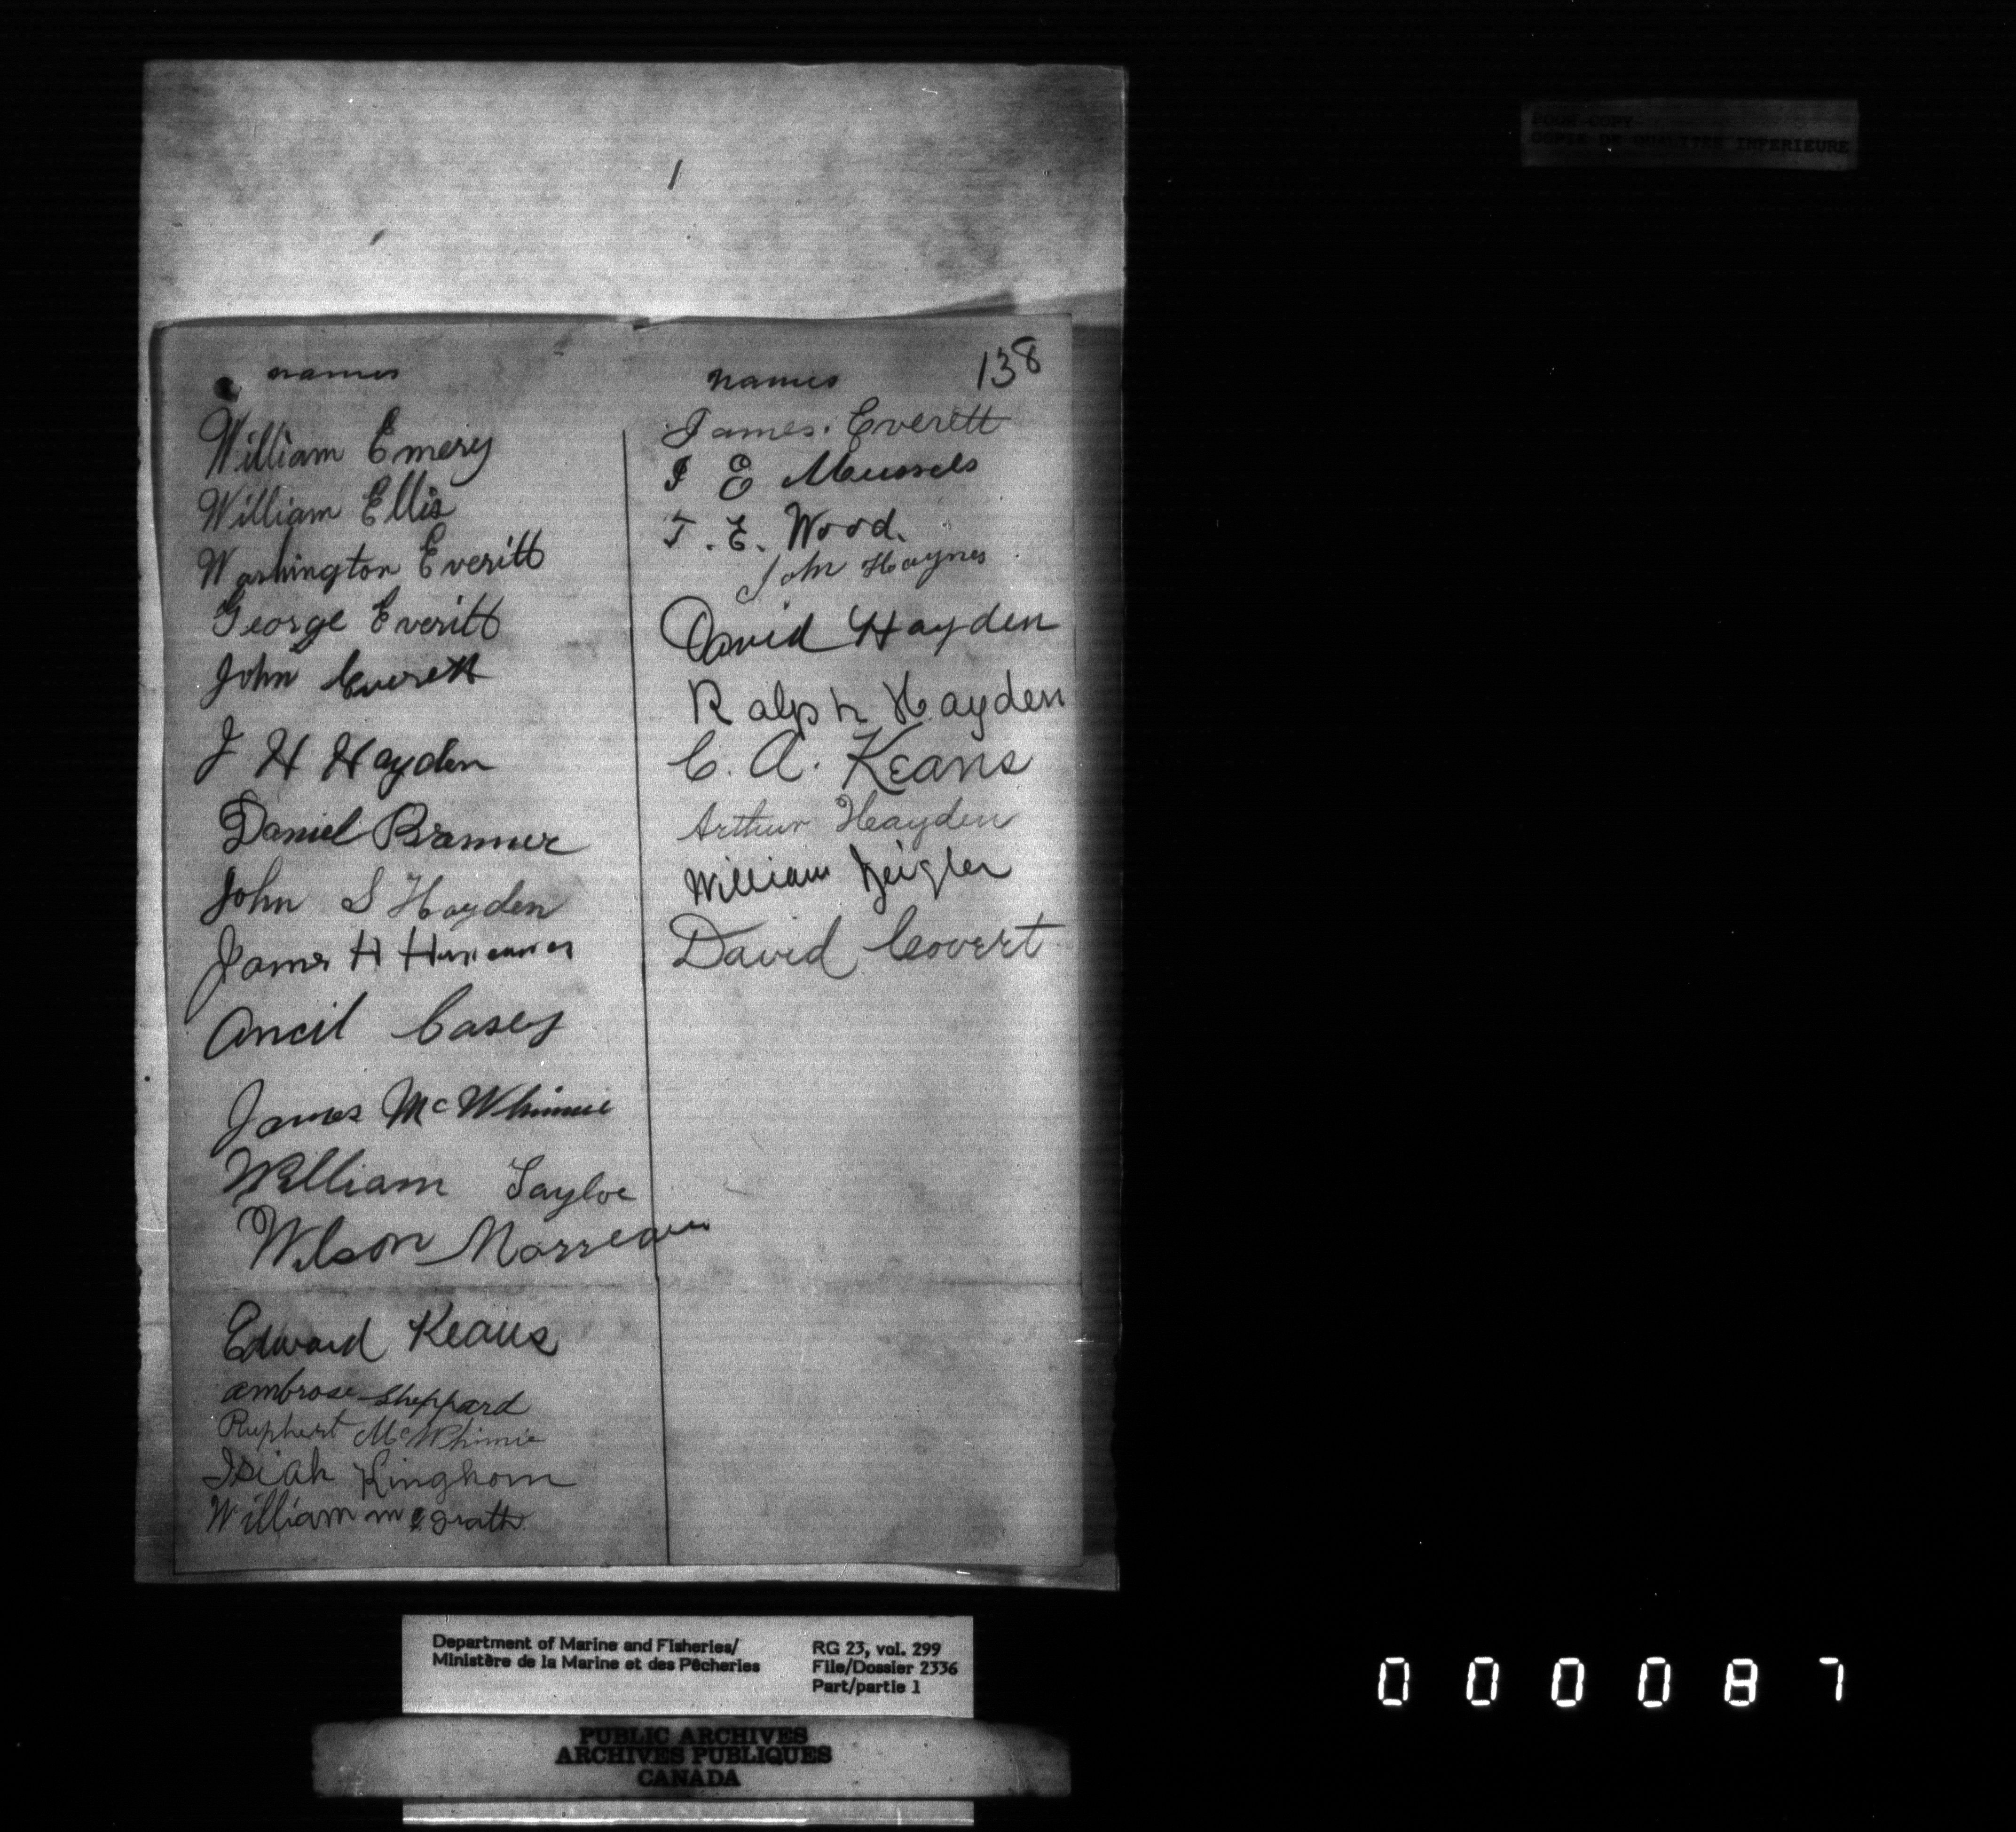 POOR COPY
COPIE DE QUALITEE INFERIEURE
138
names
William Emery
William Ellis
Washington Everitt
George Everitt
John Everett
J H Hayden
Daniel Branner
John S Hayden
James H
Ancil Casey
James McWhinnie
William Taylor
Wilson
Edward Keans
ambrose Sheppard
Ruphert McWhinnie
Isiah Kinghorn
William mcgrath
names
James. Everett
E Mussels
T. E. Wood.
John Haynes
David Hayden
Ralph Hayden
C. A. Keans
Arthur Hayden
William Zeigler
David Covert
Department of Marine and Fisheries/
Ministère de la Marine et des Pêcheries
RG 23, vol. 299
File/Dossier 2336
Part/partie 1
PUBLIC ARCHIVES
ARCHIVES PUBLIQUES
CANADA
000087